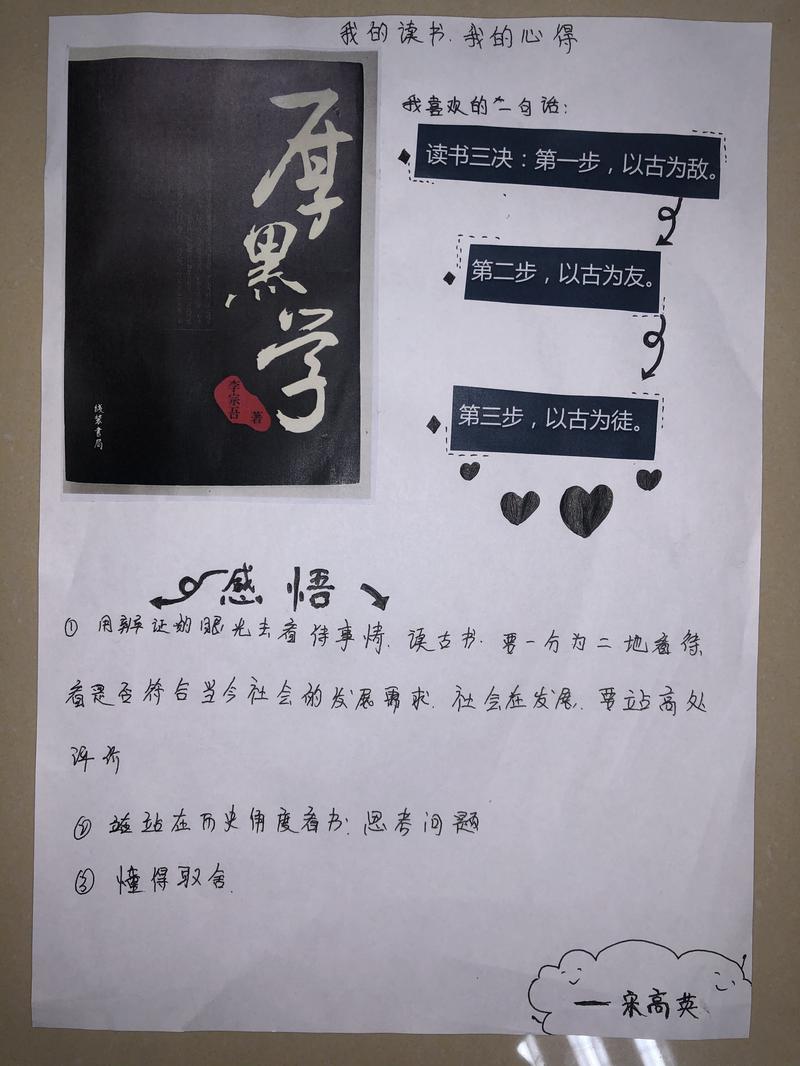 我的读书.我的心得
厚黑学
李宗吾
著
线装書局
我喜欢的一句话:
读书三决：第一步，以古为敌。
第二步，以古为友。
第三步，以古为徒。
感悟
① 用辨证的眼光去看待事情.读古书.要一分为二地看待
看是否符合当今社会的发展需求.社会在发展.要站高处
评价
② 站在历史角度看书.思考问题
③ 懂得取舍.
— 宋高英